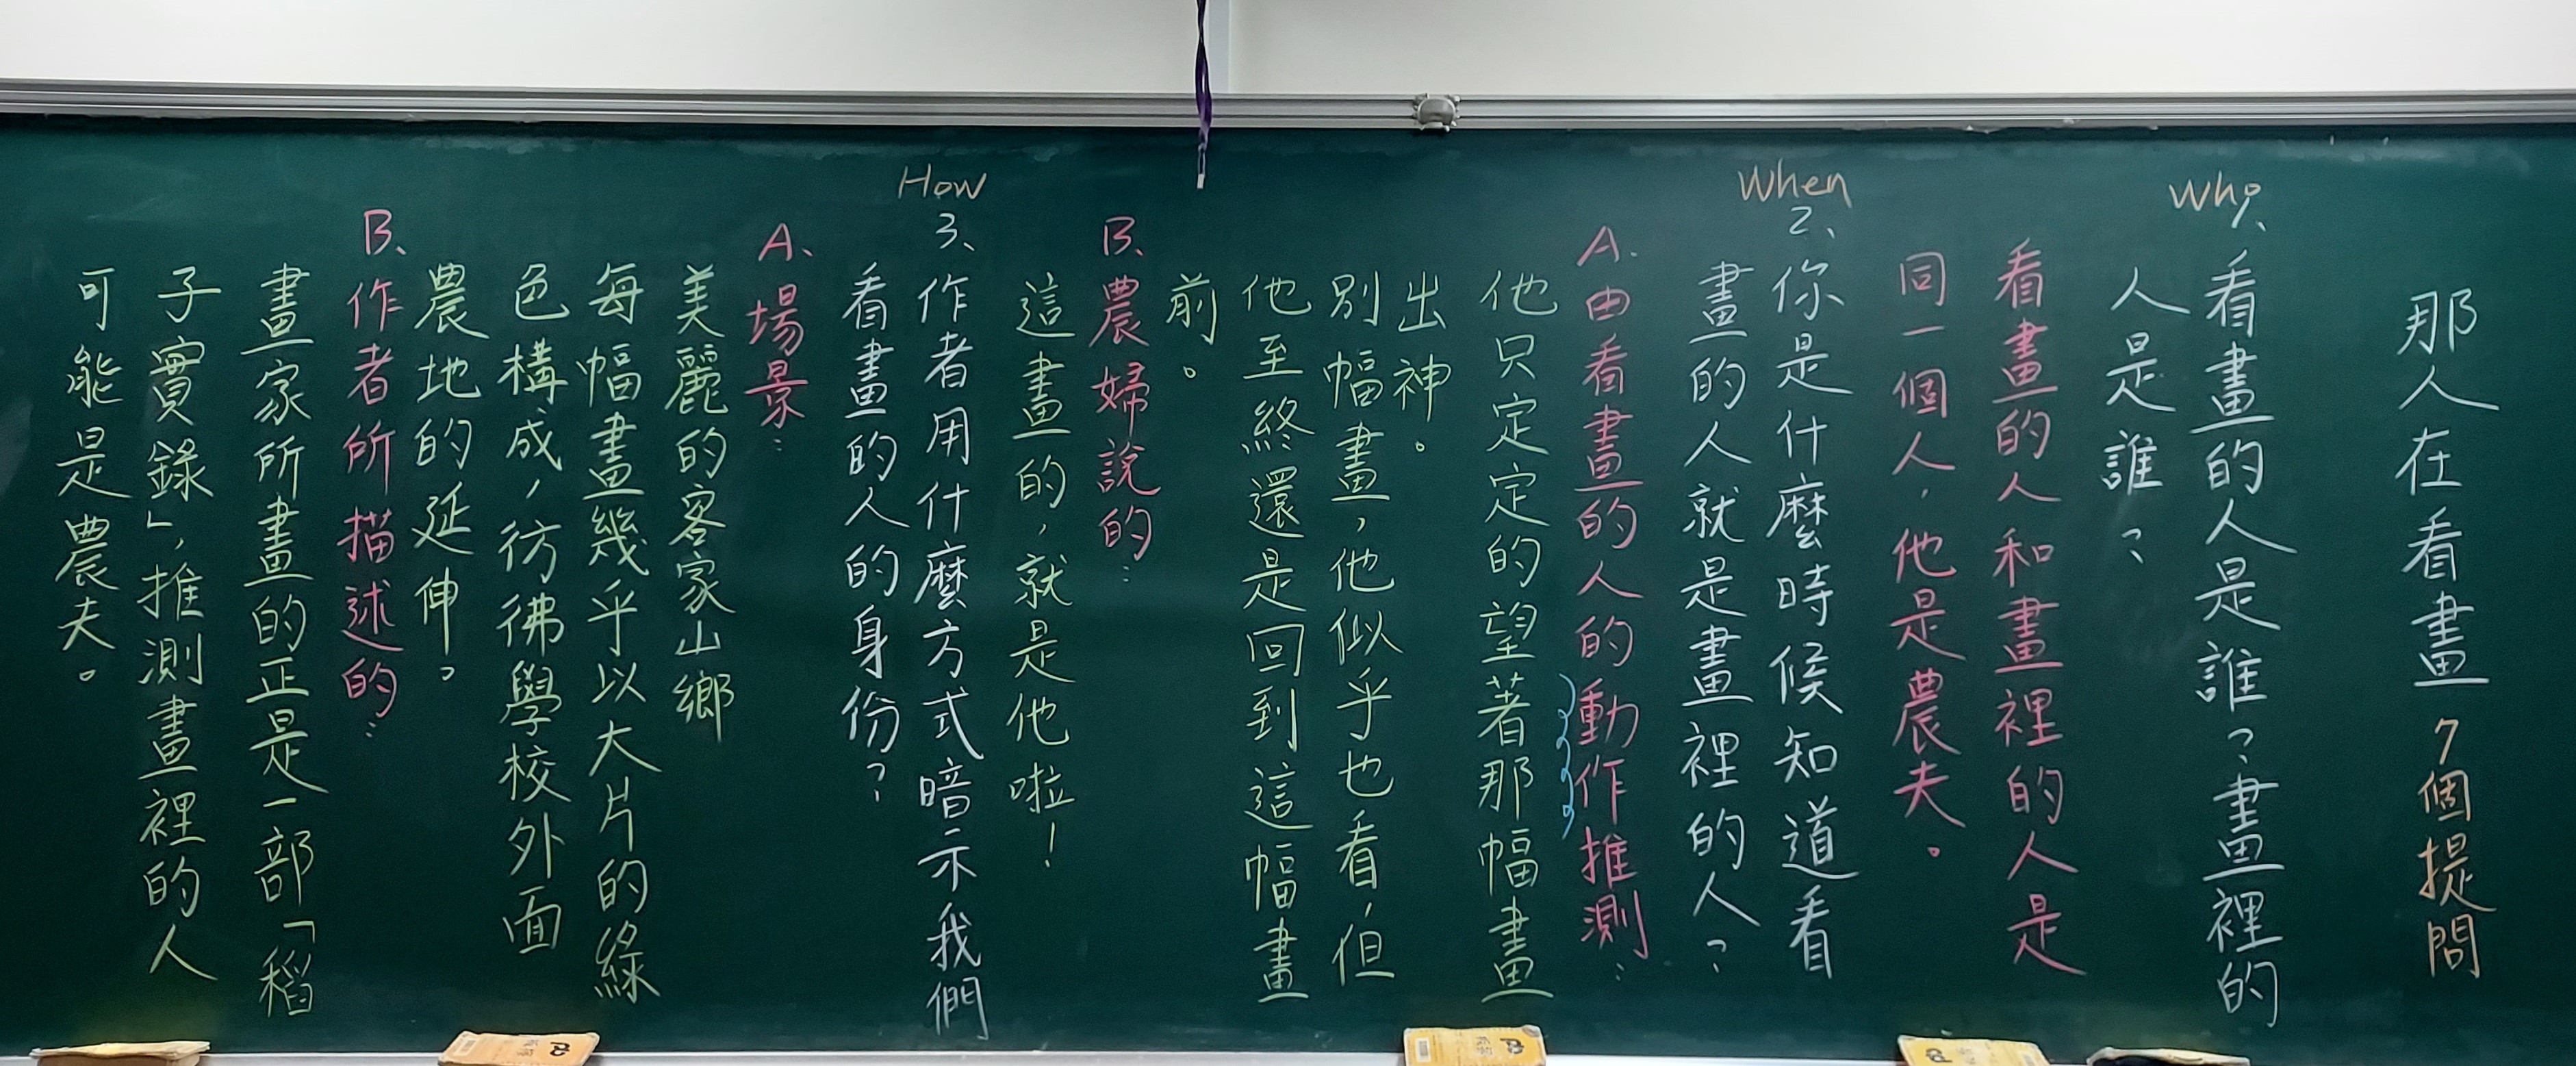 那人在看畫 7個提問
Who
1、看畫的人是誰？畫裡的
人是誰？
看畫的人和畫裡的人是
同一個人，他是農夫。
When
2、你是什麼時候知道看
畫的人就是畫裡的人？
A.由看畫的人的動作推測：
他只定定的望著那幅畫
出神。
別幅畫，他似乎也看，但
他至終還是回到這幅畫
前。
B、農婦說的：
這畫的，就是他啦！
How
3、作者用什麼方式暗示我們
看畫的人的身份？
A、場景：
美麗的客家山鄉
每幅畫幾乎以大片的綠
色構成，彷彿學校外面
農地的延伸。
B、作者所描述的：
畫家所畫的正是一部「稻
子實錄」，推測畫裡的人
可能是農夫。